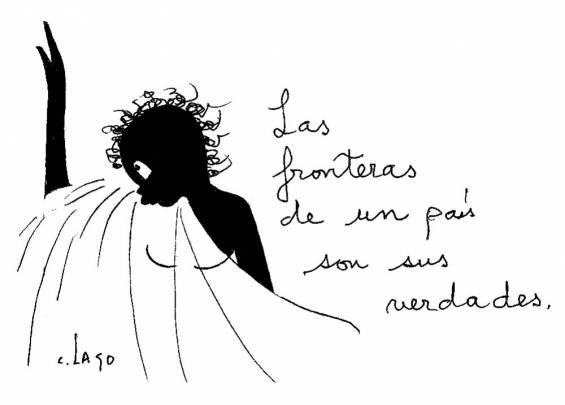 Las
fronteras
de un país
son sus
verdades.
c. LAGO